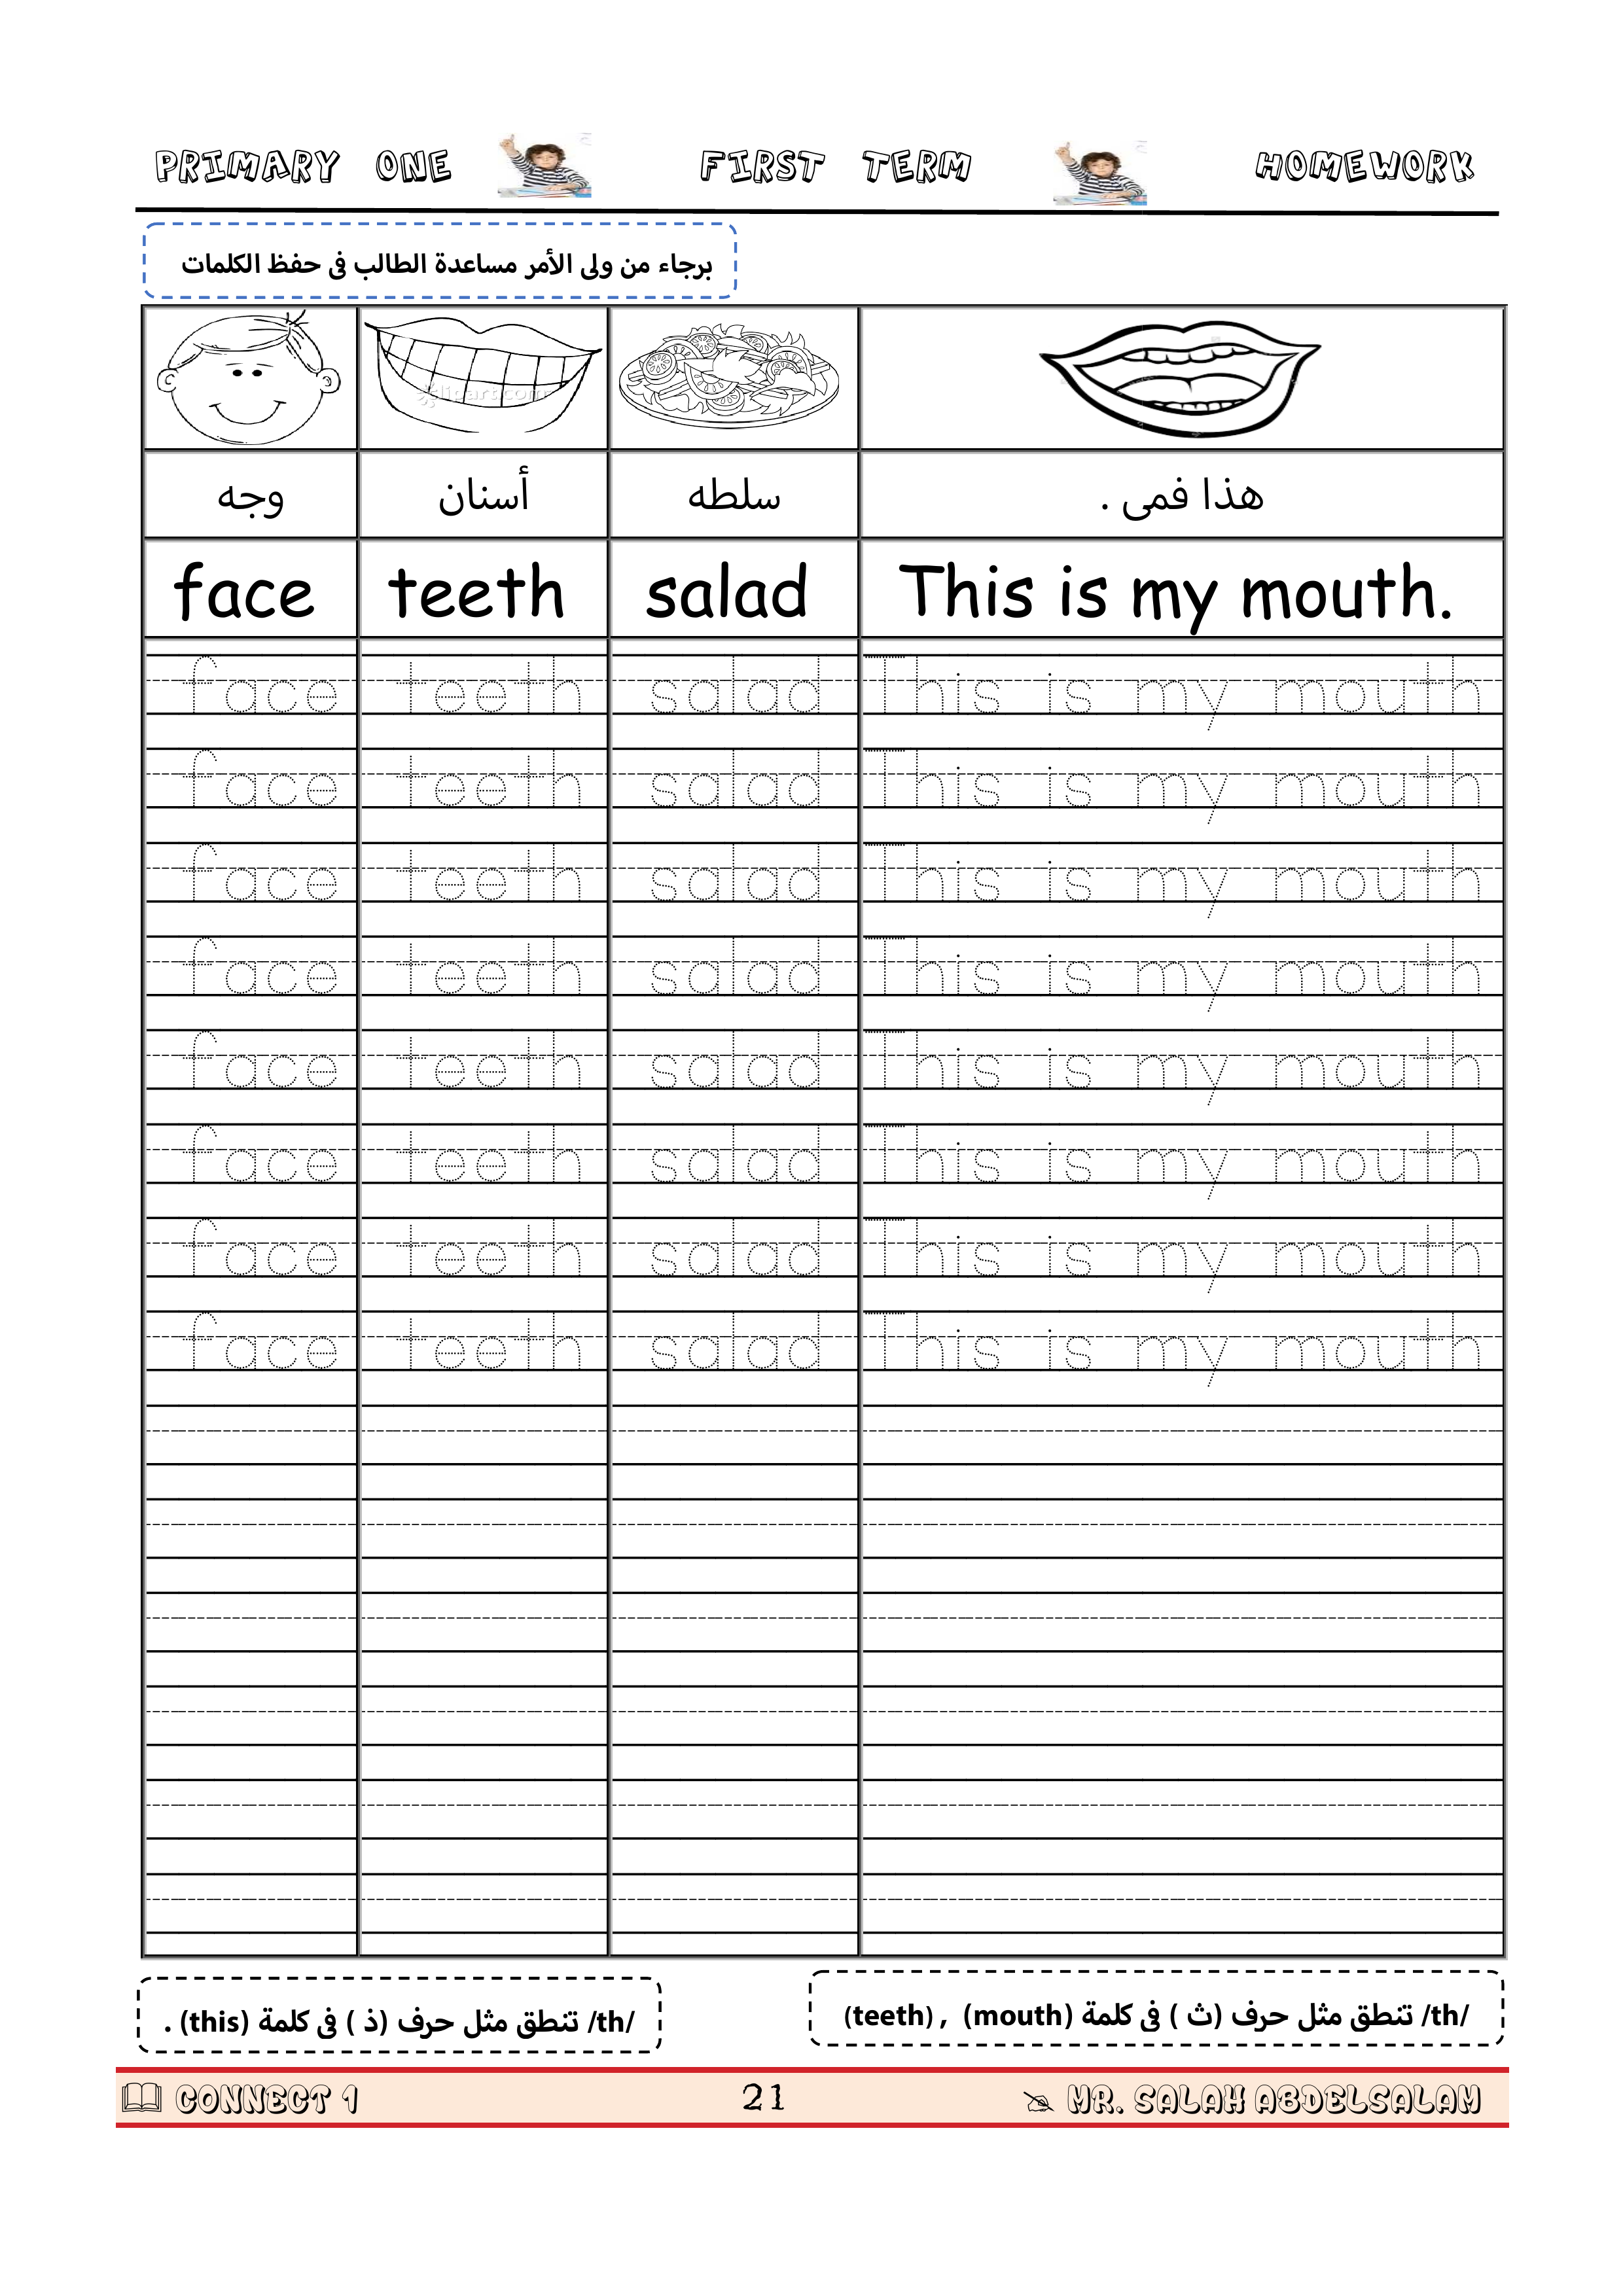 PRIMARY ONE FIRST TERM HOMEWORK
برجاء من ولى الأمر مساعدة الطالب فى حفظ الكلمات
clipart.com
وجه أسنان سلطه هذا فمى .
face teeth salad This is my mouth.
face teeth salad This is my mouth
face teeth salad This is my mouth
face teeth salad This is my mouth
face teeth salad This is my mouth
face teeth salad This is my mouth
face teeth salad This is my mouth
face teeth salad This is my mouth
face teeth salad This is my mouth
/th/ تنطق مثل حرف (ث ) فى كلمة (mouth) , (teeth)
/th/ تنطق مثل حرف (ذ ) فى كلمة (this) .
CONNECT 1 21 MR. SALAH ABDELSALAM